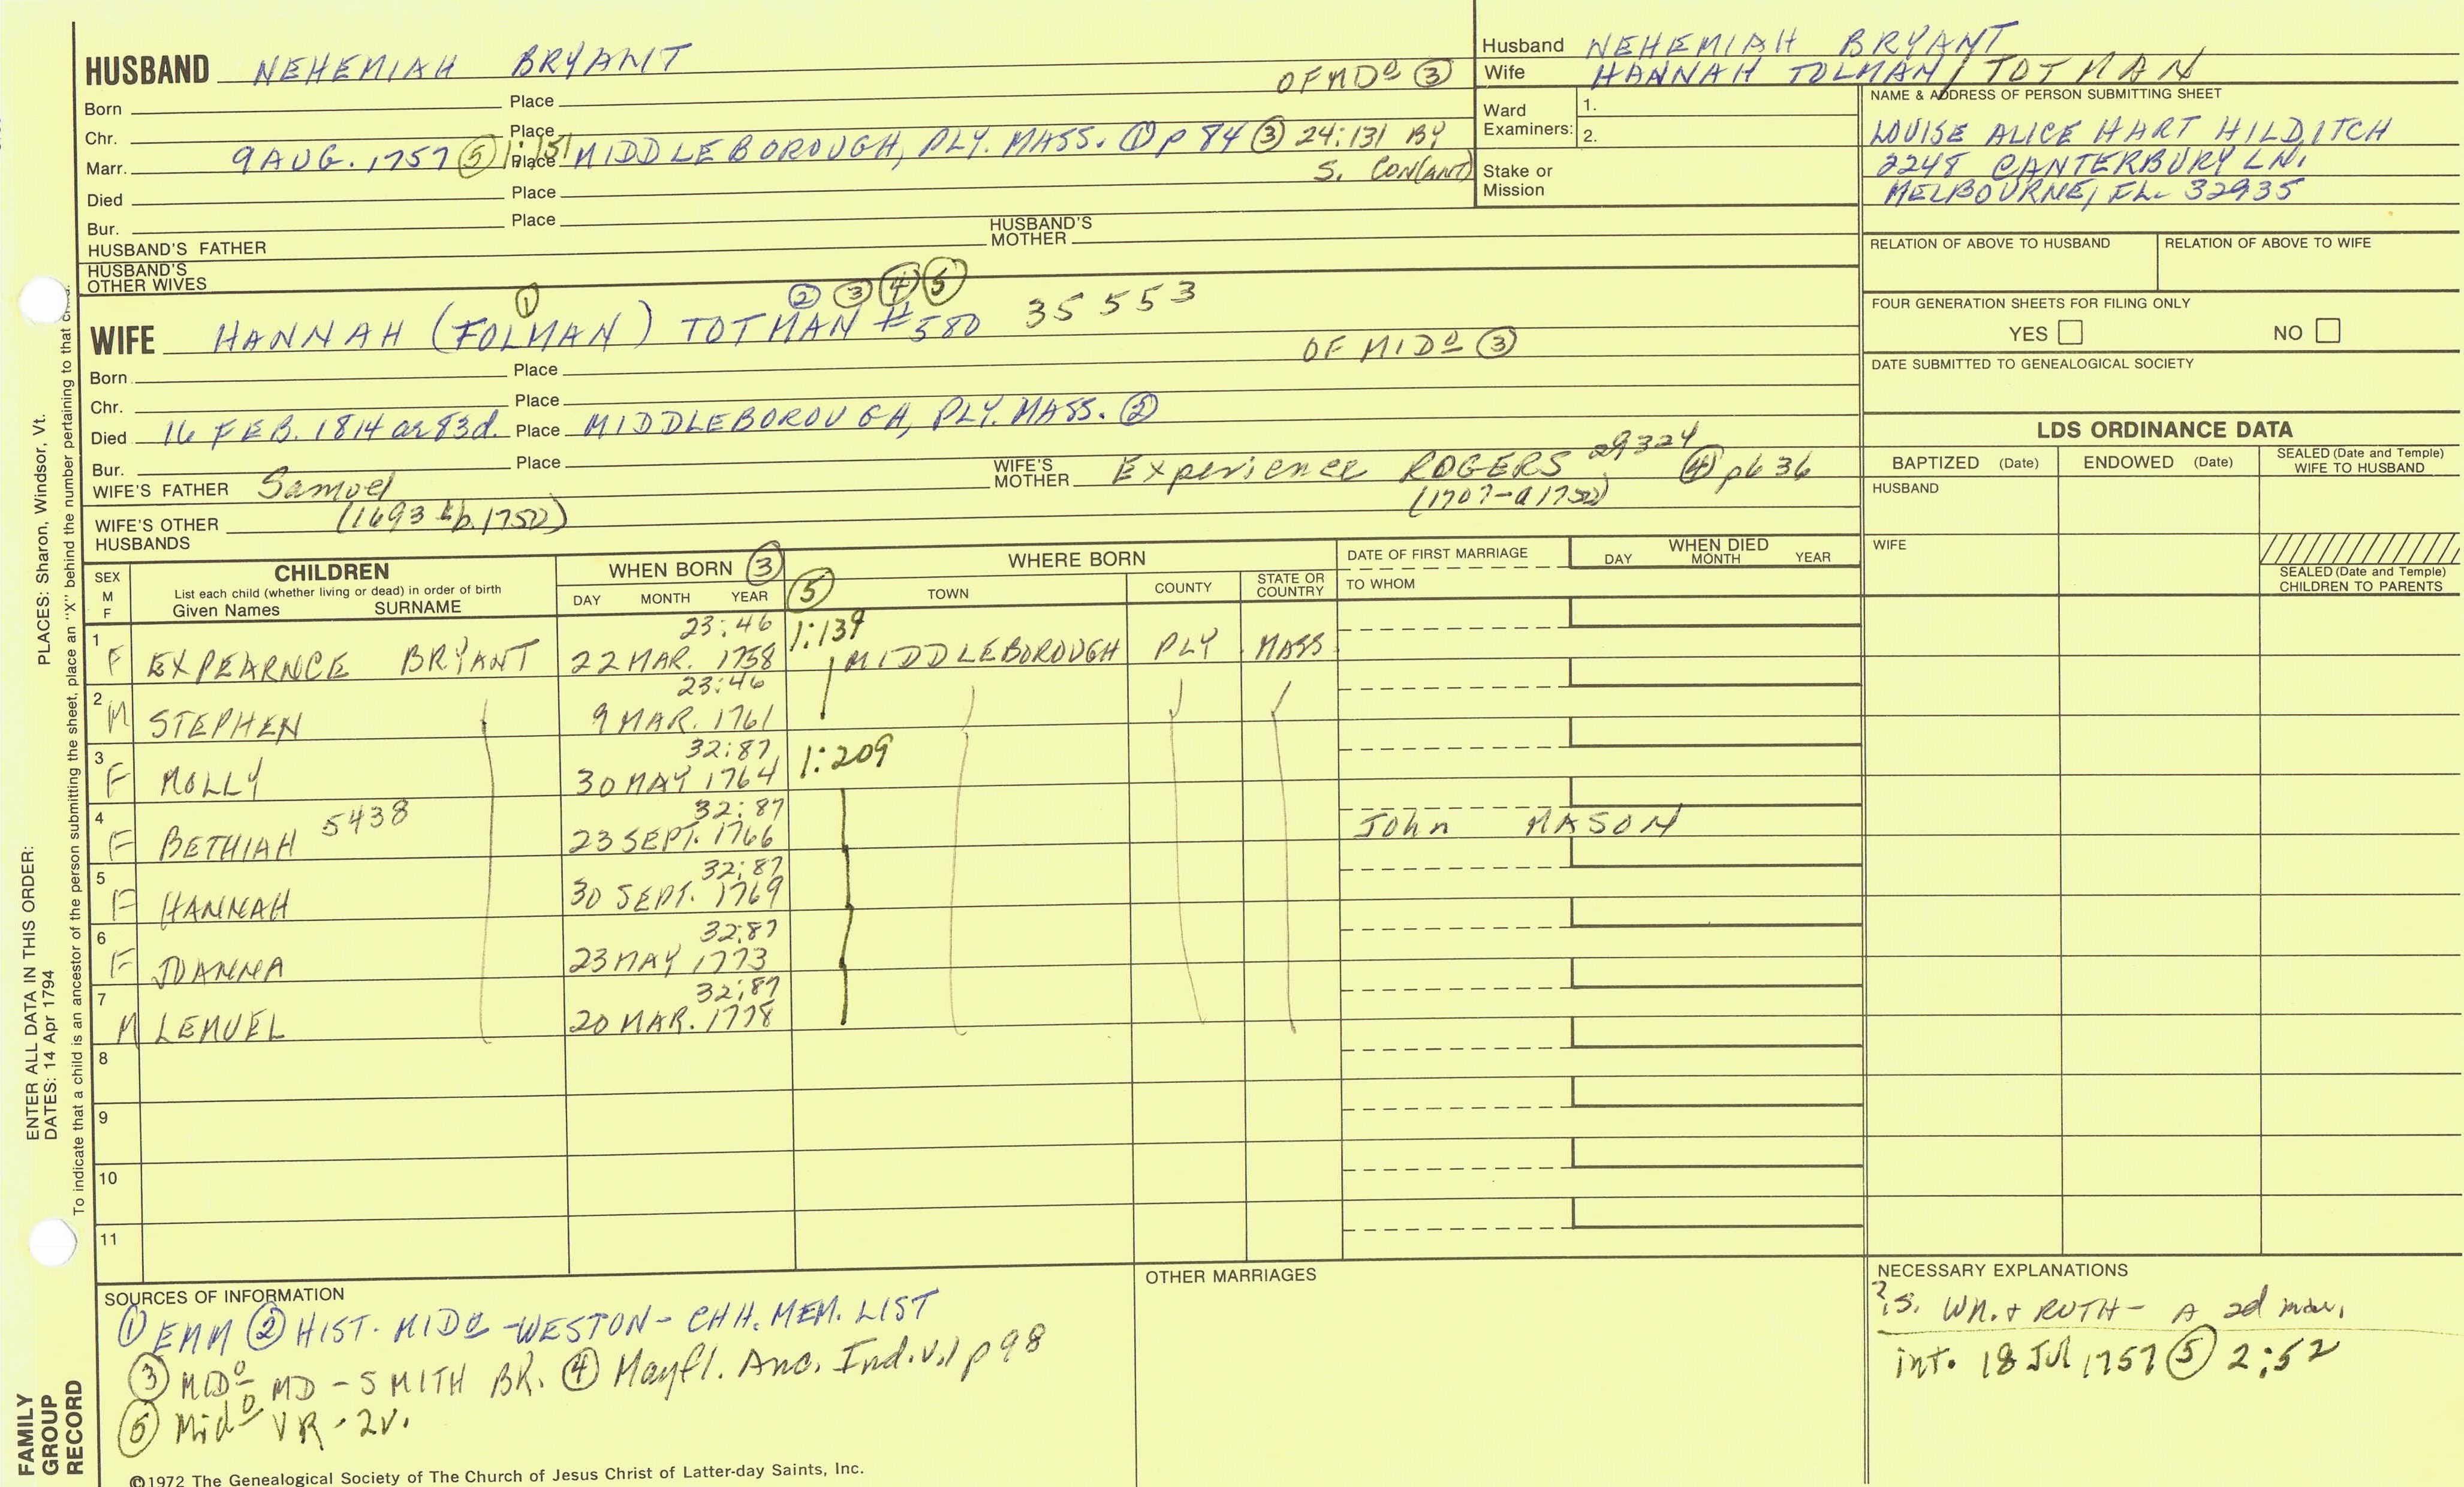 HUSBAND NEHEMIAH BRYANT OF MDo ③
Born Place
Chr. Place
Marr. 9 AUG. 1757 ⑤ 1:151 Place MIDDLEBOROUGH, PLY. MASS. ① p 84 ③ 24:131 BY
S. CON(ANT)
Died Place
Bur. Place
HUSBAND'S FATHER HUSBAND'S MOTHER
HUSBAND'S OTHER WIVES
① ② ③ ④ ⑤
WIFE HANNAH (FOLMAN) TOTMAN #580 35553
OF MIDo ③
Born Place
Chr. Place
Died 16 FEB. 1814 ae 83d. Place MIDDLEBOROUGH, PLY. MASS. ②
Bur. Place
WIFE'S FATHER Samuel WIFE'S MOTHER Experience ROGERS 29324 ④ p636
(1693 b. 1750) (1707-a 1750)
WIFE'S OTHER HUSBANDS
Husband NEHEMIAH BRYANT
Wife HANNAH TOLMAN / TOTMAN
Ward Examiners: 1.
2.
Stake or Mission
NAME & ADDRESS OF PERSON SUBMITTING SHEET
LOUISE ALICE HART HILDITCH
2248 CANTERBURY LN.
MELBOURNE, FL. 32935
RELATION OF ABOVE TO HUSBAND RELATION OF ABOVE TO WIFE
FOUR GENERATION SHEETS FOR FILING ONLY
YES NO
DATE SUBMITTED TO GENEALOGICAL SOCIETY
LDS ORDINANCE DATA
BAPTIZED (Date) ENDOWED (Date) SEALED (Date and Temple) WIFE TO HUSBAND
HUSBAND
WIFE
SEALED (Date and Temple) CHILDREN TO PARENTS
SEX M F
CHILDREN
List each child (whether living or dead) in order of birth
Given Names SURNAME
WHEN BORN ③
DAY MONTH YEAR ⑤
WHERE BORN
TOWN COUNTY STATE OR COUNTRY
DATE OF FIRST MARRIAGE
TO WHOM
WHEN DIED
DAY MONTH YEAR
23:46 1:139
1 F EXPEARNCE BRYANT 22 MAR. 1758 MIDDLEBOROUGH PLY MASS
23:46
2 M STEPHEN 9 MAR. 1761
32:87 1:209
3 F MOLLY 30 MAY 1764
32:87
4 F BETHIAH 5438 23 SEPT. 1766 John MASON
32:87
5 F HANNAH 30 SEPT. 1769
32:87
6 F JOANNA 23 MAY 1773
32:87
7 M LEMUEL 20 MAR. 1778
8
9
10
11
SOURCES OF INFORMATION
① EMM ② HIST. MIDo - WESTON - CHH. MEM. LIST
③ MIDo MD - SMITH BR. ④ Mayfl. Anc. Ind. v.1 p98
⑤ Mido VR - 2v.
OTHER MARRIAGES
NECESSARY EXPLANATIONS
?s. WM. + RUTH - A 2d mar.
int. 18 Jul 1757 ⑤ 2:52
©1972 The Genealogical Society of The Church of Jesus Christ of Latter-day Saints, Inc.
FAMILY GROUP RECORD
ENTER ALL DATA IN THIS ORDER:
DATES: 14 Apr 1794
PLACES: Sharon, Windsor, Vt.
To indicate that a child is an ancestor of the person submitting the sheet, place an "X" behind the number pertaining to that